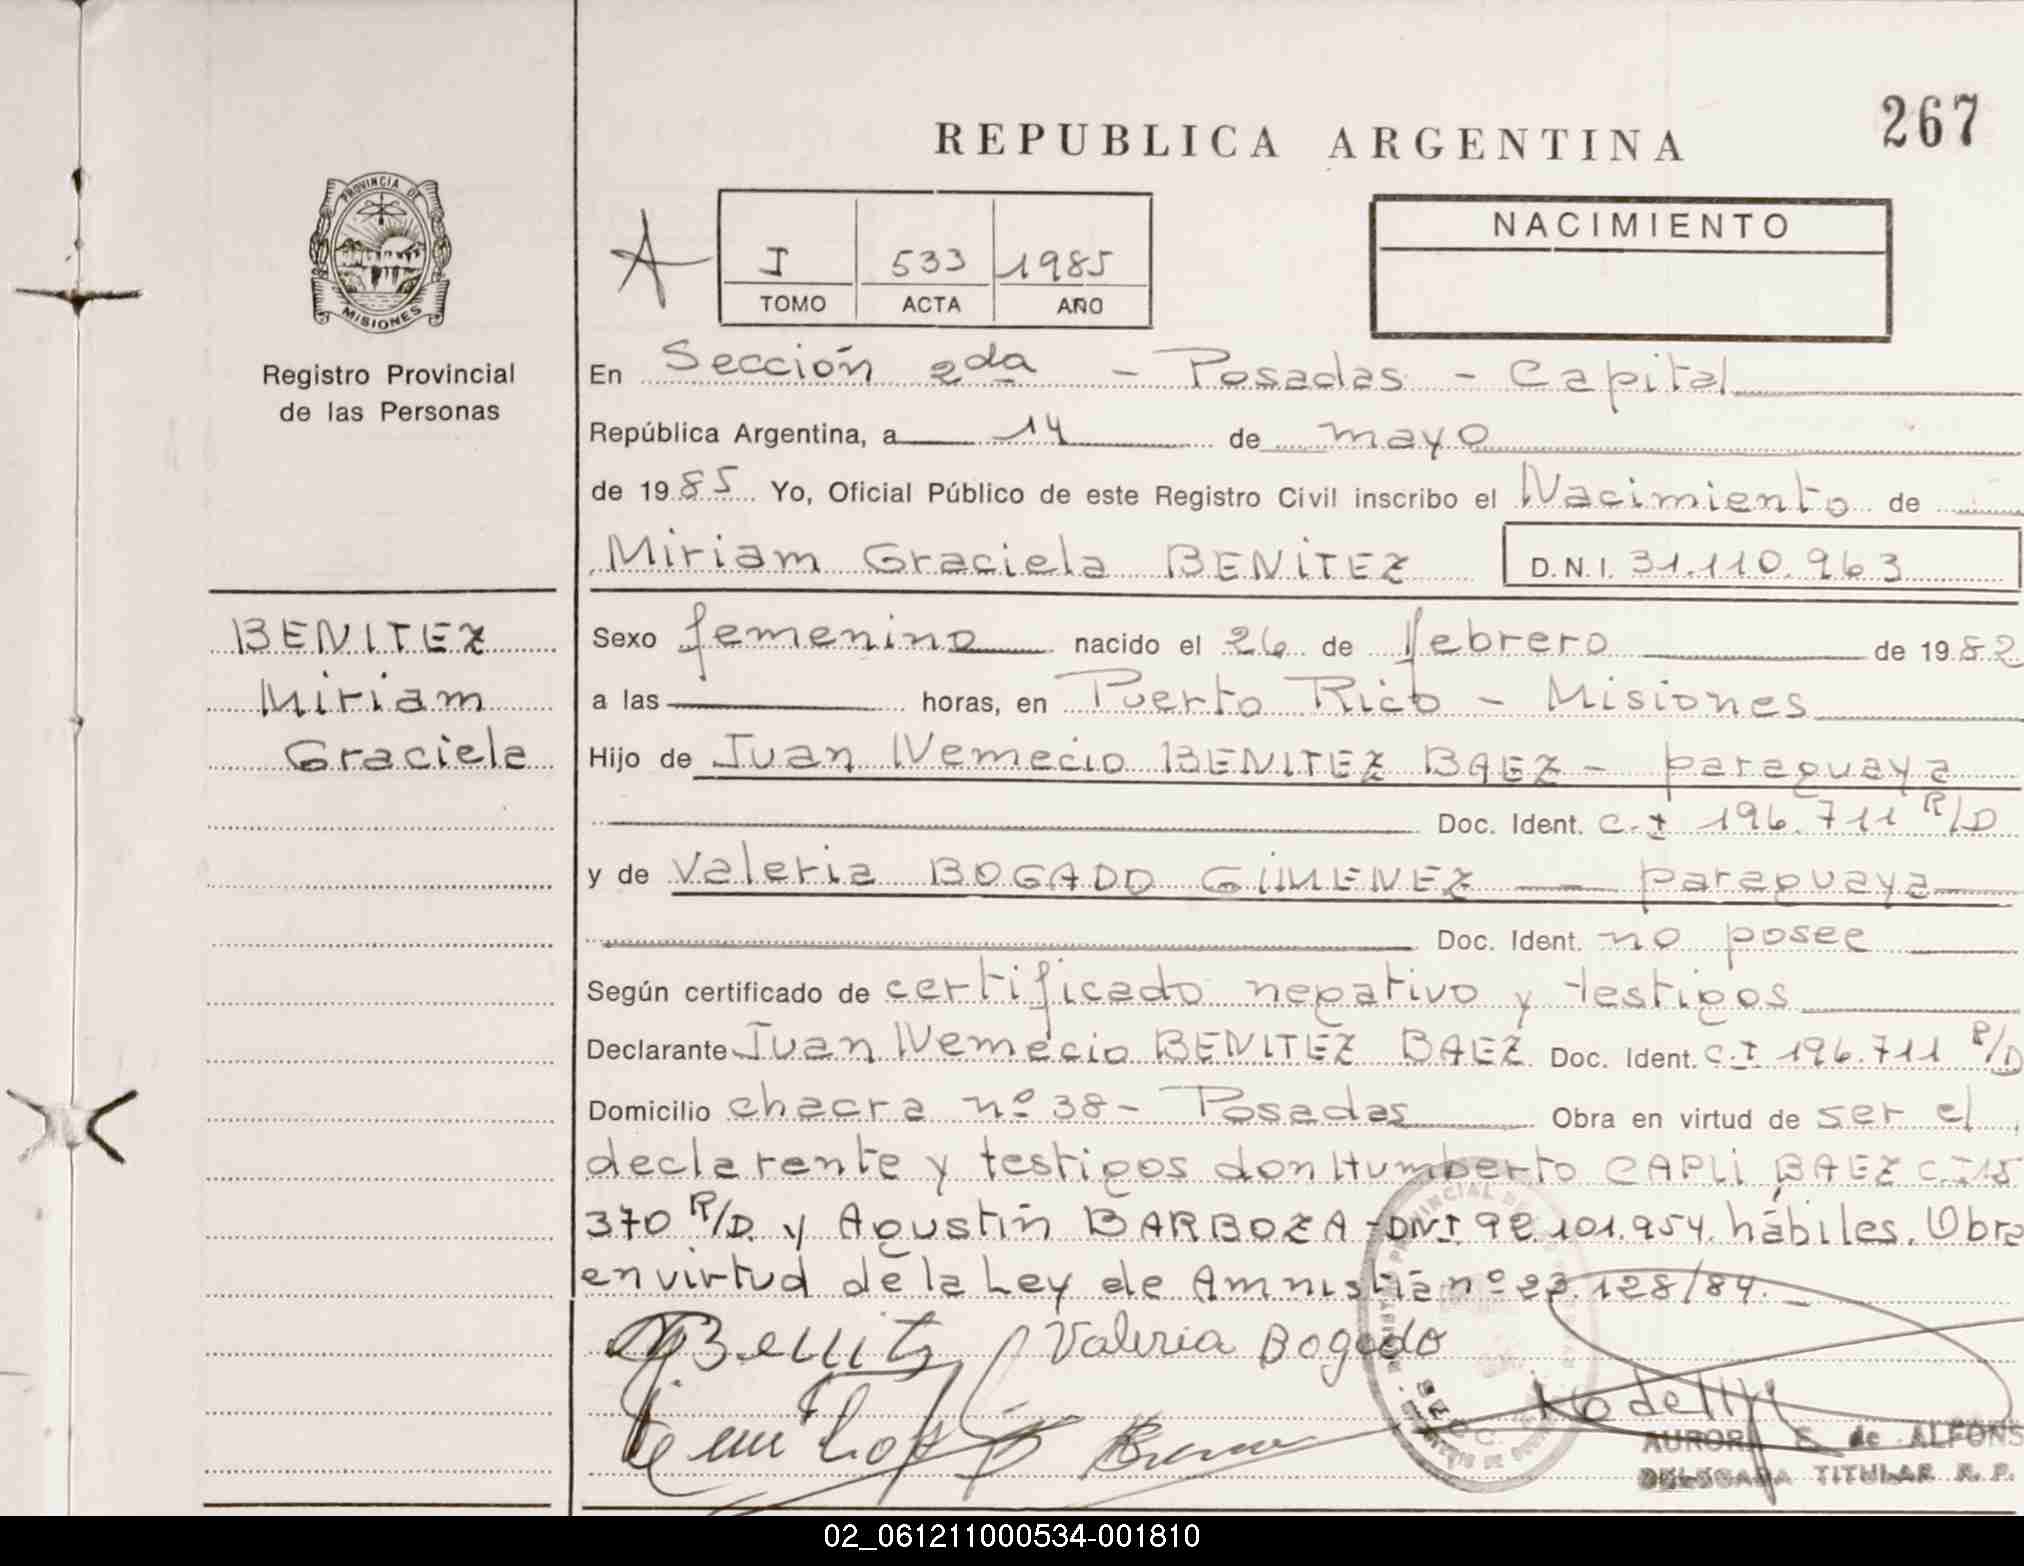 267
REPUBLICA ARGENTINA
PROVINCIA DE
MISIONES
Registro Provincial
de las Personas
I 533 1985
TOMO ACTA AÑO
NACIMIENTO
En Sección 2da - Posadas - Capital
República Argentina, a 14 de mayo
de 1985 Yo, Oficial Público de este Registro Civil inscribo el Nacimiento de
Miriam Graciela BENITEZ D.N.I. 31.110.963
BENITEZ
Miriam
Graciela
Sexo femenino nacido el 26 de febrero de 1982
a las horas, en Puerto Rico - Misiones
Hijo de Juan Nemecio BENITEZ BAEZ - paraguaya
Doc. Ident. C.I 196.711 R/D
y de Valeria BOGADO GIMENEZ paraguaya
Doc. Ident. no posee
Según certificado de certificado negativo y testigos
Declarante Juan Nemecio BENITEZ BAEZ Doc. Ident. C.I 196.711 R/D
Domicilio chacra nº 38 - Posadas Obra en virtud de ser el
declarente y testigos don Humberto CAPLI BAEZ C.I 15
370 R/D. y Agustín BARBOZA - DNI 92.101.954. hábiles. Obra
en virtud de la Ley de Amnistía nº 23.128/84.
Valeria Bogado
AURORA E. de ALFONS
DELEGADA TITULAR R. P.
02_061211000534-001810